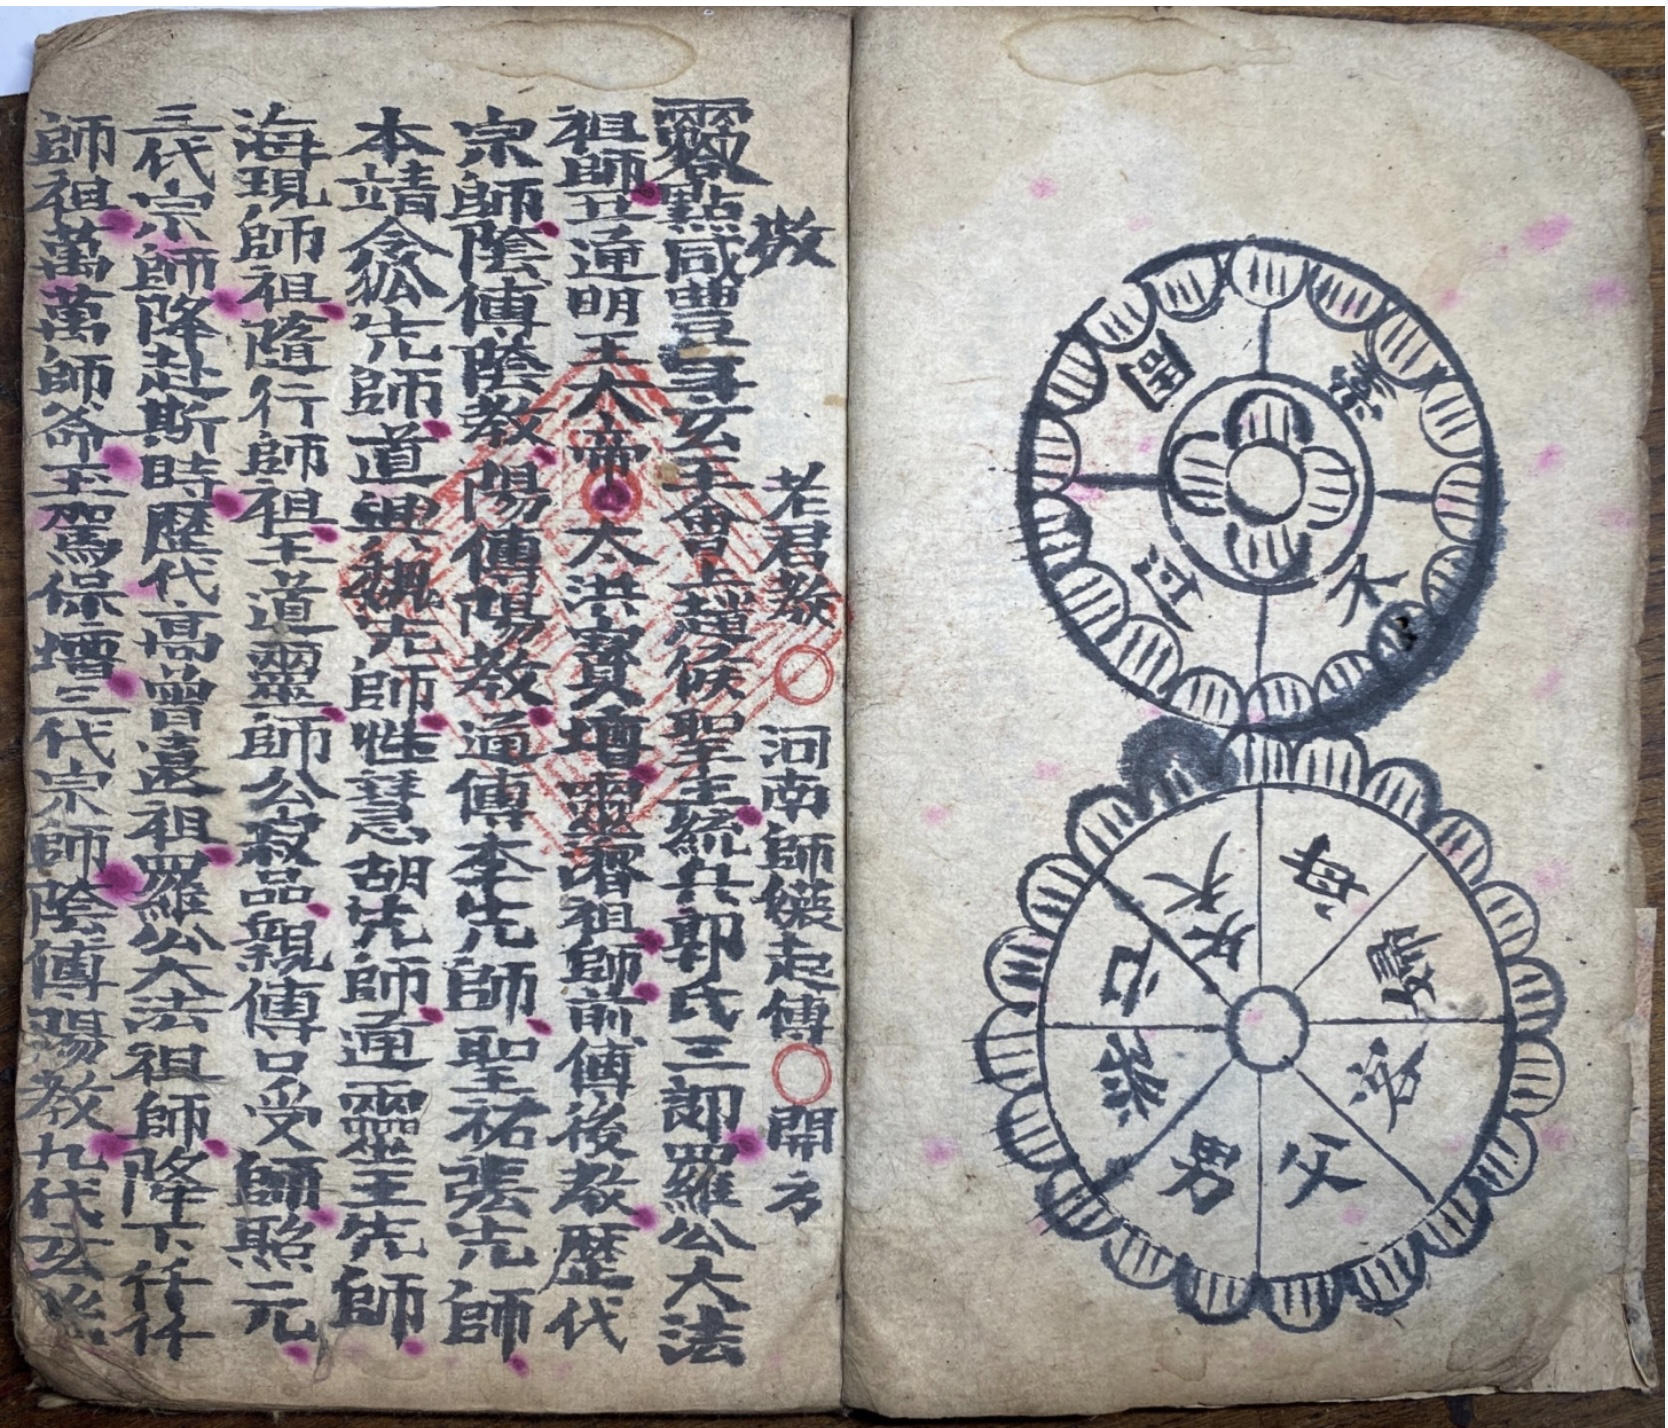 母
婦
客
父
男
癸
亡
夭
敬 老君教 河南師 起傳 開方
點咸豐 玄天會上趙侯聖主統兵郭氏三郎羅公大法
祖師 通明王大帝 太洪寶 靈 祖師前傳後教歷代
宗師陰傳陰教陽傳陽教通傳李先師聖祐張先師
本靖令狐先師道興魏先師性慧胡先師通靈王先師
海現師祖隨行師祖王道靈師公寂品親傳口受師照元
三代宗師降赴斯時歷代高曾遠祖羅公大法祖師降下仟仟
師祖萬萬師爺玉駕保壇三代宗師陰傳陽教九代玄